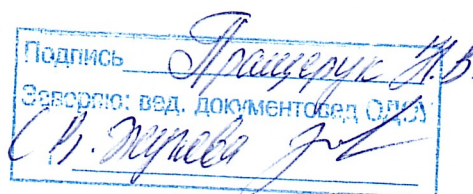 Подпись Пращерук Н.В
Заверяю: вед. документовед ОДОУ
Жукова